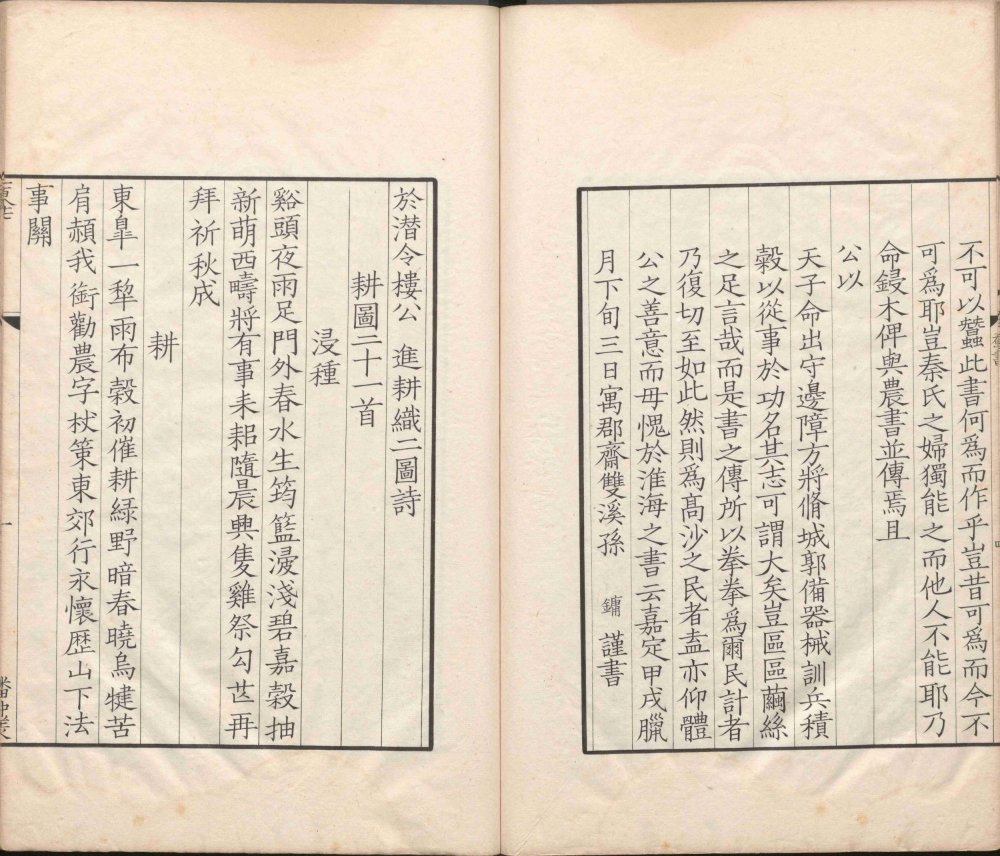 不可以蠶此書何爲而作乎豈昔可爲而今不
可爲耶豈秦氏之婦獨能之而他人不能耶乃
命鋟木俾與農書並傳焉且
公以
天子命出守邊障方將脩城郭備器械訓兵積
穀以從事於功名其志可謂大矣豈區區繭絲
之足言哉而是書之傳所以拳拳爲爾民計者
乃復切至如此然則爲高沙之民者盍亦仰體
公之善意而毋愧於淮海之書云嘉定甲戌臘
月下旬三日寓郡齋雙溪孫 鏞 謹書
於潛令樓公 進耕織二圖詩
耕圖二十一首
浸種
谿頭夜雨足門外春水生筠籃浸淺碧嘉穀抽
新萌西疇將有事耒耜隨晨興隻雞祭勾芒再
拜祈秋成
耕
東皐一犂雨布穀初催耕綠野暗春曉烏犍苦
肩赬我銜勸農字杖策東郊行永懷歷山下法
事關